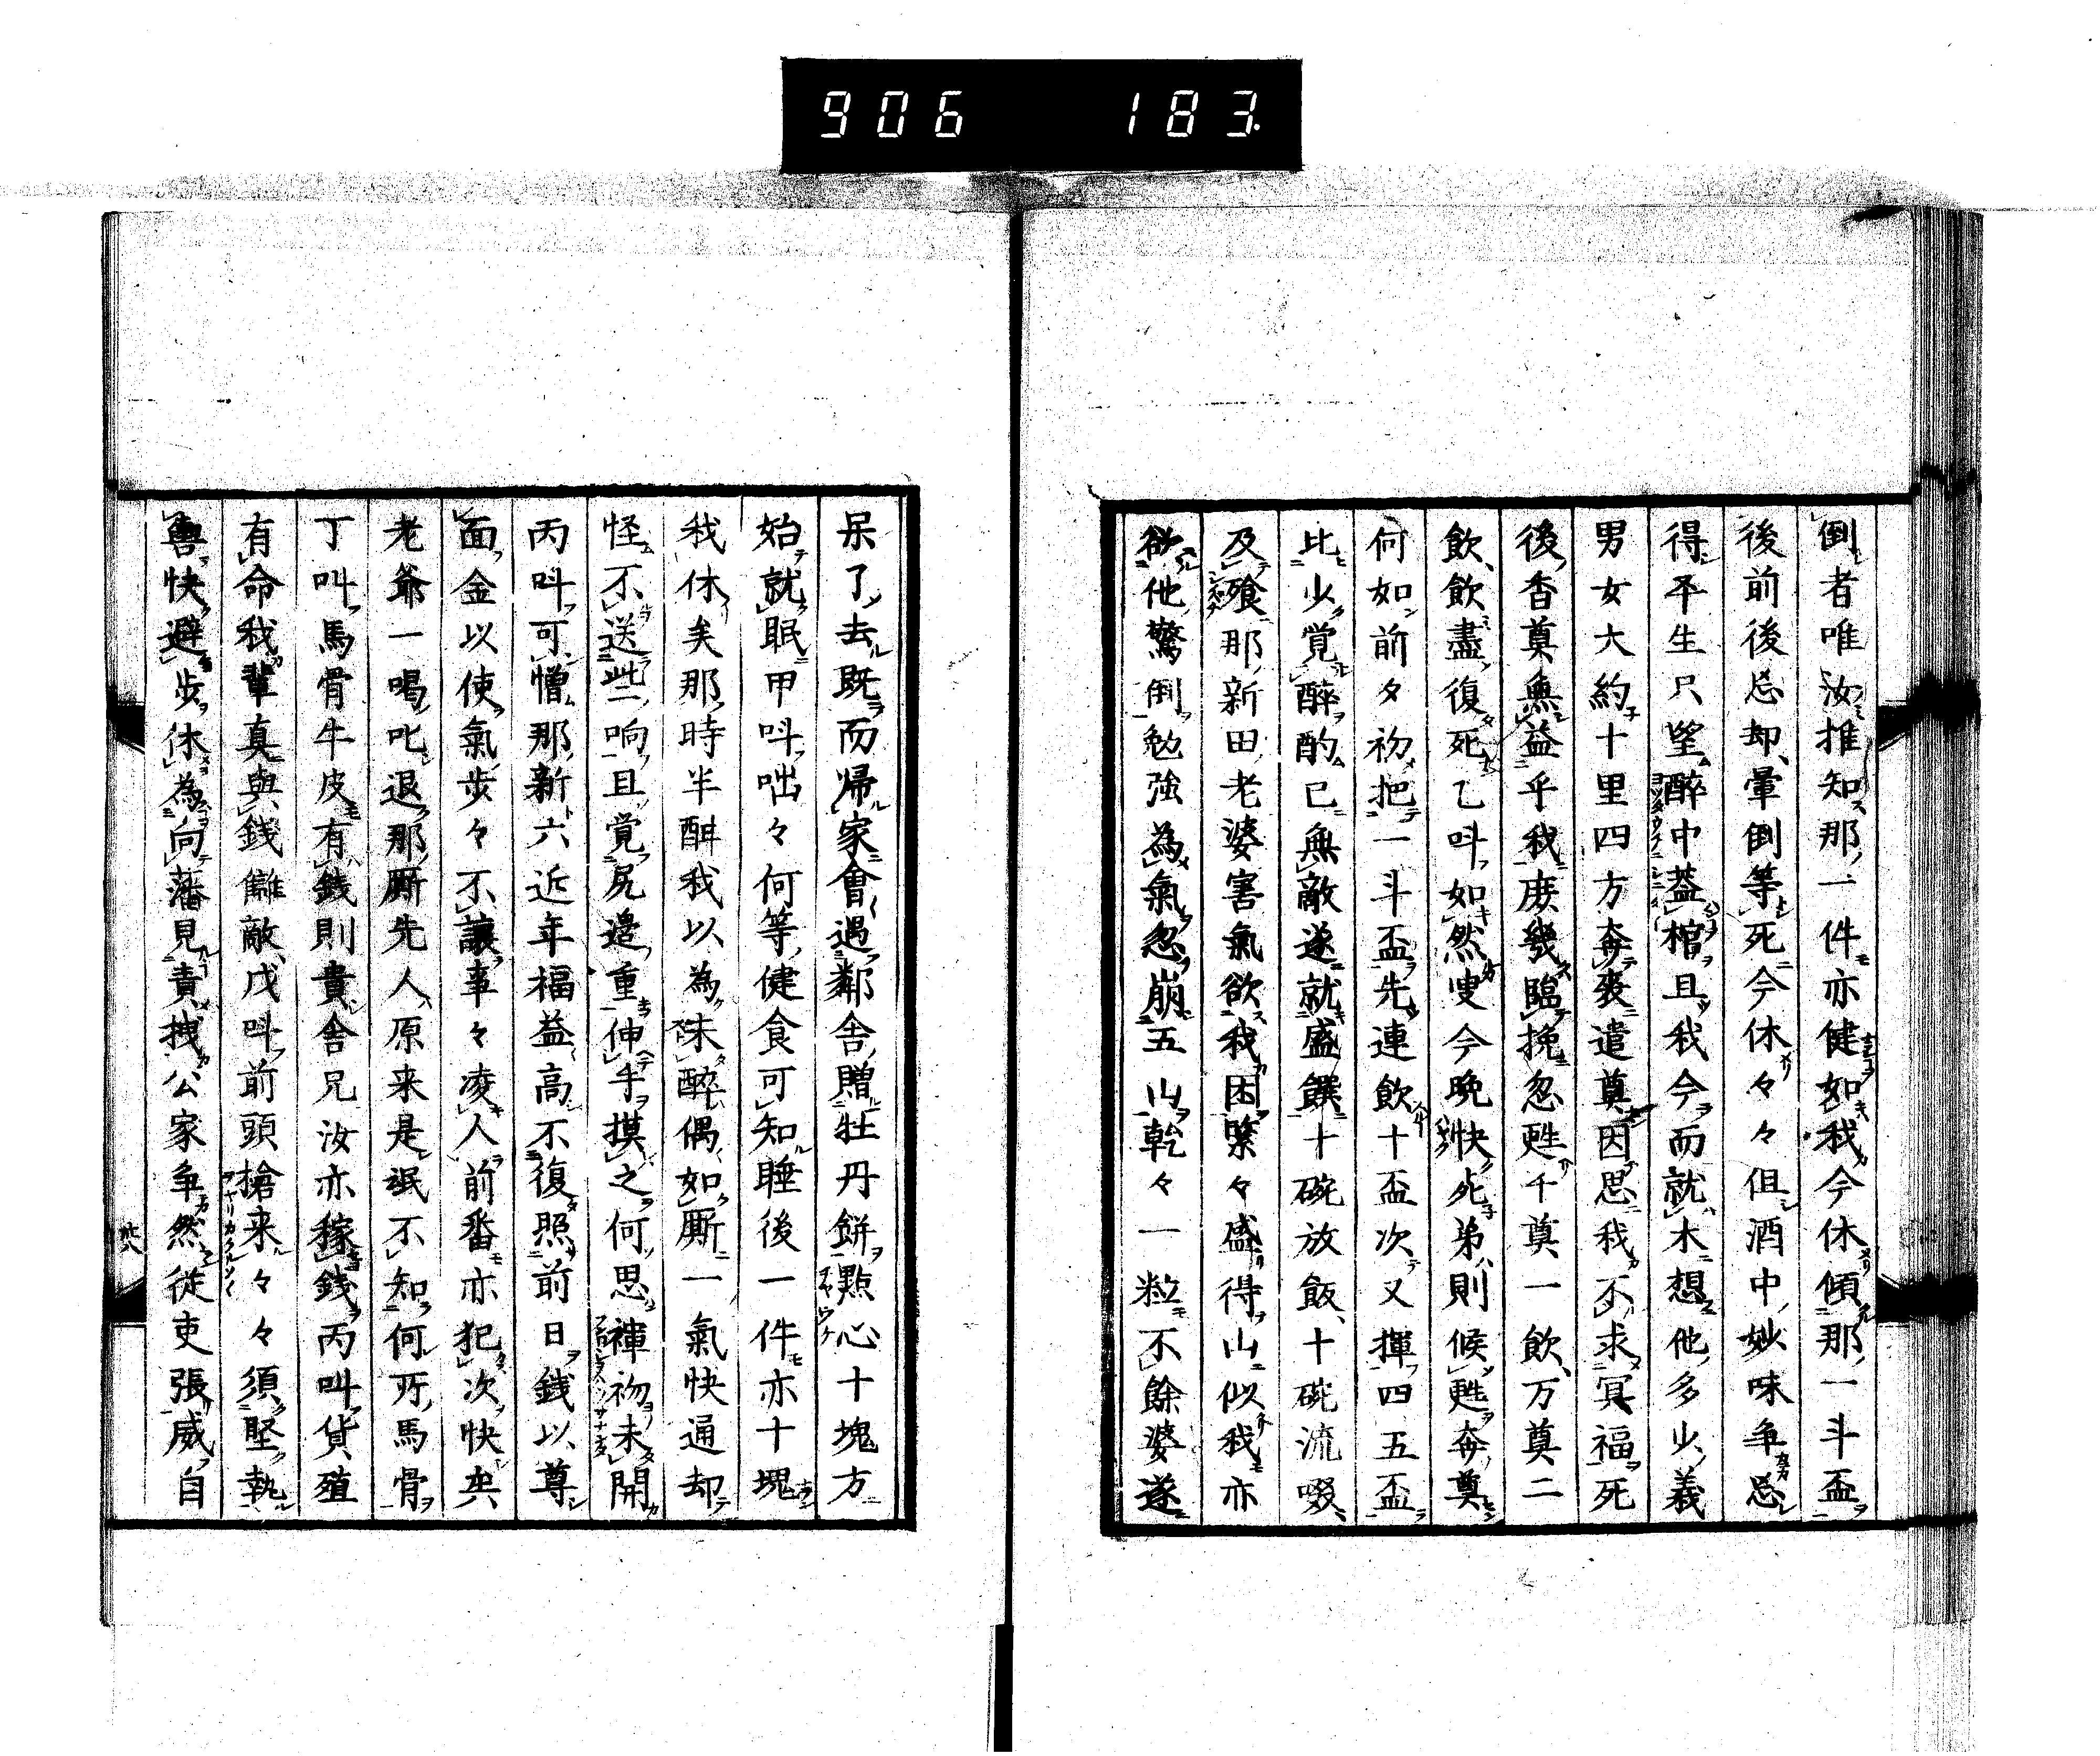 906 183
倒者唯汝推知那一件亦健如我今休傾那一斗盃
後前後忘却暈倒等死今休々々但酒中妙味争忘
得平生只望醉中蓋棺且我今而就木想他多少義
男女大約十里四方奔喪遣奠因思我不求冥福死
後香奠無益乎我庶幾臨挽忽甦千奠一飲万奠二
飲飲盡復死乙叫如然叟今晩快死弟則候甦奔奠
何如前夕初把一斗盃先連飲十盃次又揮四五盃
比少覚醉酌已無敵遂就盛饌十碗放飯十碗流啜
及飱那新田老婆害氣欲我困緊々盛得山似我亦
欲他驚倒勉強為氣忽崩五山乾々一粒不餘婆遂
呆了去既而帰家會遇鄰舎贈牡丹餅點心十塊方
始就眠甲叫咄々何等健食可知睡後一件亦十塊
我休矣那時半酣我以為未醉偶如厮一氣快通却
怪不送些响且覚尻邉重伸手摸之何思褌初未開
丙叫可憎那新六近年福益高不復照前日銭以尊
面金以使氣歩々不讓事々凌人前番亦犯次快矣
老爺一喝叱退那厮先人原来是氓不知何所馬骨
丁叫馬骨牛皮有銭則貴舎兄汝亦稼銭丙叫貨殖
有命我輩真與銭讎敵戊叫前頭搶来々々須堅執
轡快避歩休為向藩見責拽公家争然従吏張威自
六八